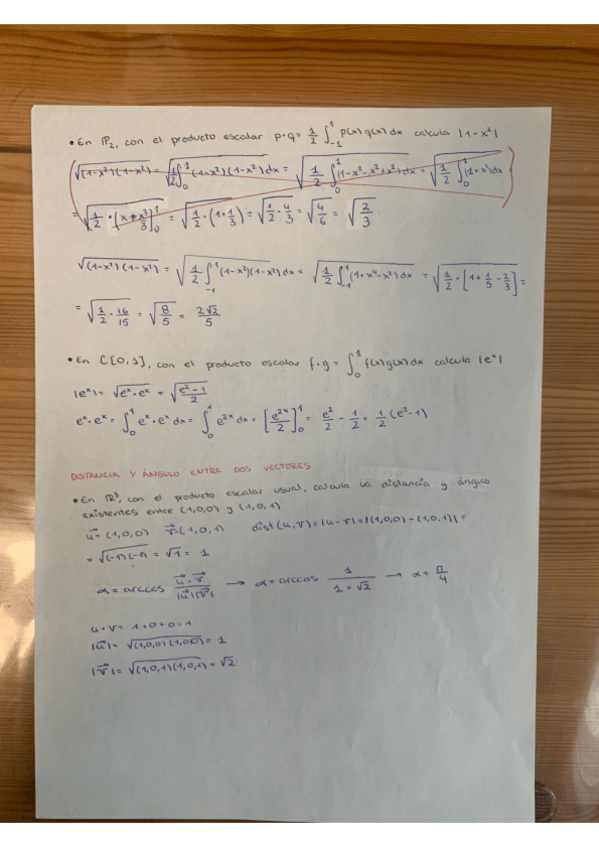 • En ℙ₂, con el producto escalar p·q = 1/2 ∫₋₁¹ p(x)q(x)dx calcula |1-x²|
√(1-x²)(1-x²) = √1/2 ∫₀¹ (1-x²)(1-x²)dx = √1/2 ∫₀¹ (1-x²-x²+x²)dx = √1/2 ∫₀¹ (1+x)dx
= √1/2 · [x+x³/3]₀¹ = √1/2 · (1+1/3) = √1/2 · 4/3 = √4/6 = √2/3
√(1-x²)(1-x²) = √1/2 ∫₋₁¹ (1-x²)(1-x²)dx = √1/2 ∫₋₁¹ (1+x⁴-x²)dx = √1/2 · [1+1/5-2/3] =
= √1/2 · 16/15 = √8/5 = 2√2/5
• En C[0,1], con el producto escalar f·g = ∫₀¹ f(x)g(x)dx calcula |eˣ|
|eˣ| = √eˣ·eˣ = √e²-1/2
eˣ·eˣ = ∫₀¹ eˣ·eˣ dx = ∫₀¹ e²ˣ dx = [e²ˣ/2]₀¹ = e²/2 - 1/2 = 1/2 (e²-1)
DISTANCIA Y ÁNGULO ENTRE DOS VECTORES
• En ℝ³, con el producto escalar usual, calcula la distancia y ángulo
existentes entre (1,0,0) y (1,0,1)
u⃗ = (1,0,0) v⃗=(1,0,1) dist(u,v) = |u-v| = |(1,0,0) - (1,0,1)| =
= √(-1)(-1) = √1 = 1
α = arccos u⃗·v⃗/|u⃗||v⃗| → α = arccos 1/1·√2 → α = π/4
u·v = 1+0+0=1
|u⃗| = √(1,0,0)(1,0,0) = 1
|v⃗| = √(1,0,1)(1,0,1) = √2